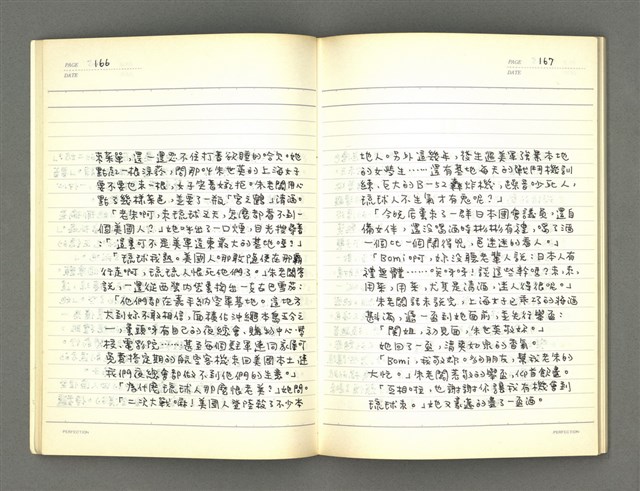 PAGE 166
DATE
來菜單,還一邊忍不住打着欲睡的哈欠。她
點起一根涼菸,問那叫朱世英的上海女子
要不要也來一根,女子笑着婉拒。朱老闆用心
點了幾樣菜色,並要了一瓶「宮之鶴」清酒。
「老朱啊,來琉球又天,怎麼都看不到一
個美國人?」她呼出了一口煙,目光搜尋着
:「這裏可不是美軍遠東最大的基地嗎?」
「琉球我熟。美國人。那敢隨便在那霸
行走啊,琉球人恨死他們了。」朱老闆答
說,一邊從西裝內裏掏出一包古巴雪茄:
「他們都在嘉手納空軍基地。這地方
大到妳不敢相信,面積佔沖繩本島五分之
一,裏頭啥有自己的夜總會,購物中心學
校、電影院……甚至每個駐軍連同家眷可
免費搭定期的航空客機來回美國本土連
我們夜總會都做不到他們的生意。」
「為什麼琉球人那麼恨老美?」她問。
「二次大戰。嘛!美國人登陸殺了不少本
PAGE 167
DATE
地人。另外這幾年,發生過美軍強暴本地
的女學生……還有基地每天的戰鬥機訓
練,巨大的B-52轟炸機,噪音吵死人,
琉球人不生氣才有鬼呢?」
「今晚店裏來了一群日本國會議員,還自
備女伴,還沒喝酒時彬彬有禮,喝了酒
一個比一個鬧得兇,色迷迷的看人。」
「Bomi啊,妳沒聽老輩人說:日本人有
禮無體……哎喲!談這些幹嗎?來,來,
用菜,用菜,尤其是清酒,迷人得很呢。」
朱老闆話未說完,上海女士已乖巧的將酒
斟滿,遞一盅到她面前,並先行舉盅:
「閔姐,初見面,朱世英敬妳。」
她回了一盅,清爽如泉的香氣。
「Bomi,我敬妳。為的朋友,幫我老朱的
大忙。」朱老闆恭敬的舉盅,仰首飲盡。
「互相。啦,也謝謝你讓我有機會到
琉球來。」她又豪邁的盡了一盅酒。
PERFECTION
PERFECTION